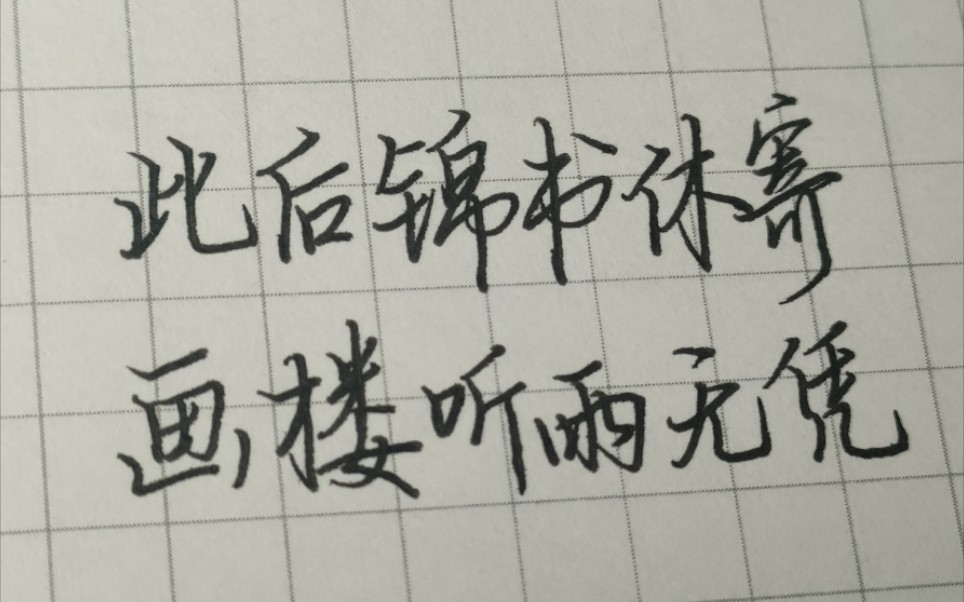 此后锦书休寄
画楼听雨无凭